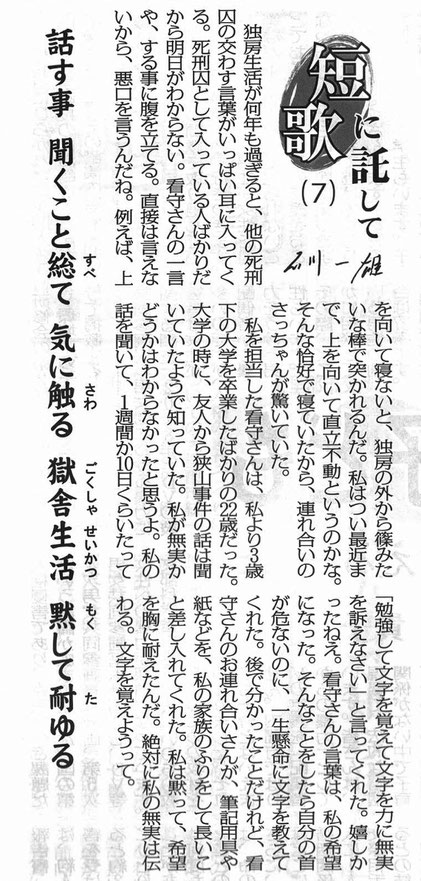 短歌に託して
(7)
石川一雄
独房生活が何年も過ぎると、他の死刑
囚の交わす言葉がいっぱい耳に入ってく
る。死刑囚として入っている人ばかりだ
から明日がわからない。看守さんの一言
や、する事に腹を立てる。直接は言えな
いから、悪口を言うんだね。例えば、上
を向いて寝ないと、独房の外から篠みた
いな棒で突かれるんだ。私はつい最近ま
で、上を向いて直立不動というのかな。
そんな恰好で寝ていたから、連れ合いの
さっちゃんが驚いていた。
私を担当した看守さんは、私より3歳
下の大学を卒業したばかりの22歳だった。
大学の時に、友人から狭山事件の話は聞
いていたようで知っていた。私が無実か
どうかはわからなかったと思うよ。私の
話を聞いて、1週間か10日くらいたって
「勉強して文字を覚えて文字を力に無実
を訴えなさい」と言ってくれた。嬉しか
ったねえ。看守さんの言葉は、私の希望
になった。そんなことをしたら自分の首
が危ないのに、一生懸命に文字を教えて
くれた。後で分かったことだけれど、看
守さんのお連れ合いさんが、筆記用具や
紙などを、私の家族のふりをして長いこ
と差し入れてくれた。私は黙って、希望
を胸に耐えたんだ。絶対に私の無実は伝
わる。文字を覚えようって。
話す事 聞くこと総て 気に触る 獄舎生活 黙して耐ゆる
すべ さわ ごくしゃ せいかつ もく た